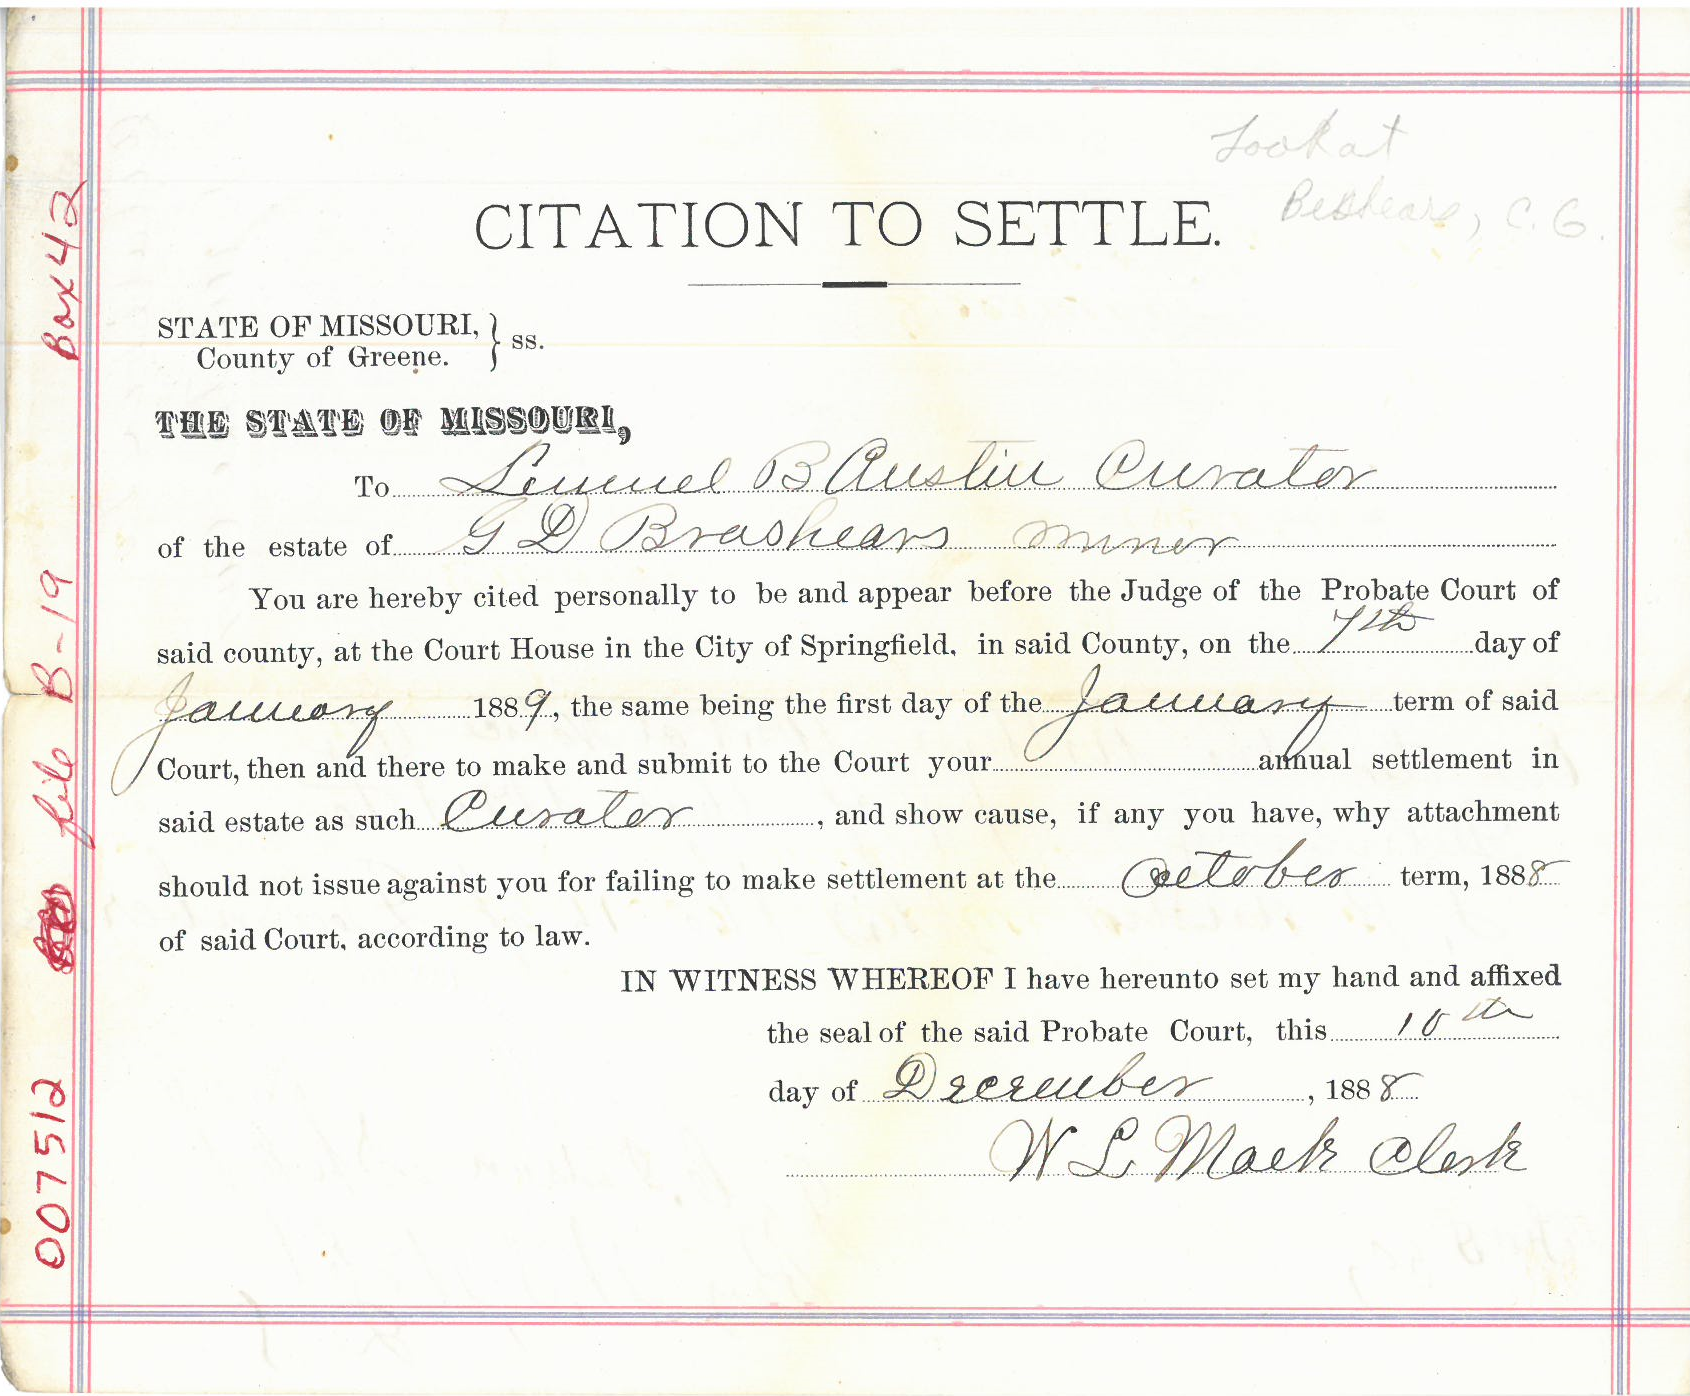 Look at
Beshears, C. G.
CITATION TO SETTLE.
STATE OF MISSOURI,
County of Greene. } ss.
THE STATE OF MISSOURI,
To Lemuel B Austin Curator
of the estate of G D Brashears minor
You are hereby cited personally to be and appear before the Judge of the Probate Court of
said county, at the Court House in the City of Springfield, in said County, on the 7th day of
January 1889, the same being the first day of the January term of said
Court, then and there to make and submit to the Court your annual settlement in
said estate as such Curator, and show cause, if any you have, why attachment
should not issue against you for failing to make settlement at the October term, 1888
of said Court, according to law.
IN WITNESS WHEREOF I have hereunto set my hand and affixed
the seal of the said Probate Court, this 10th
day of December, 1888
W L Mack Clerk
007512 file B-19 Box 42